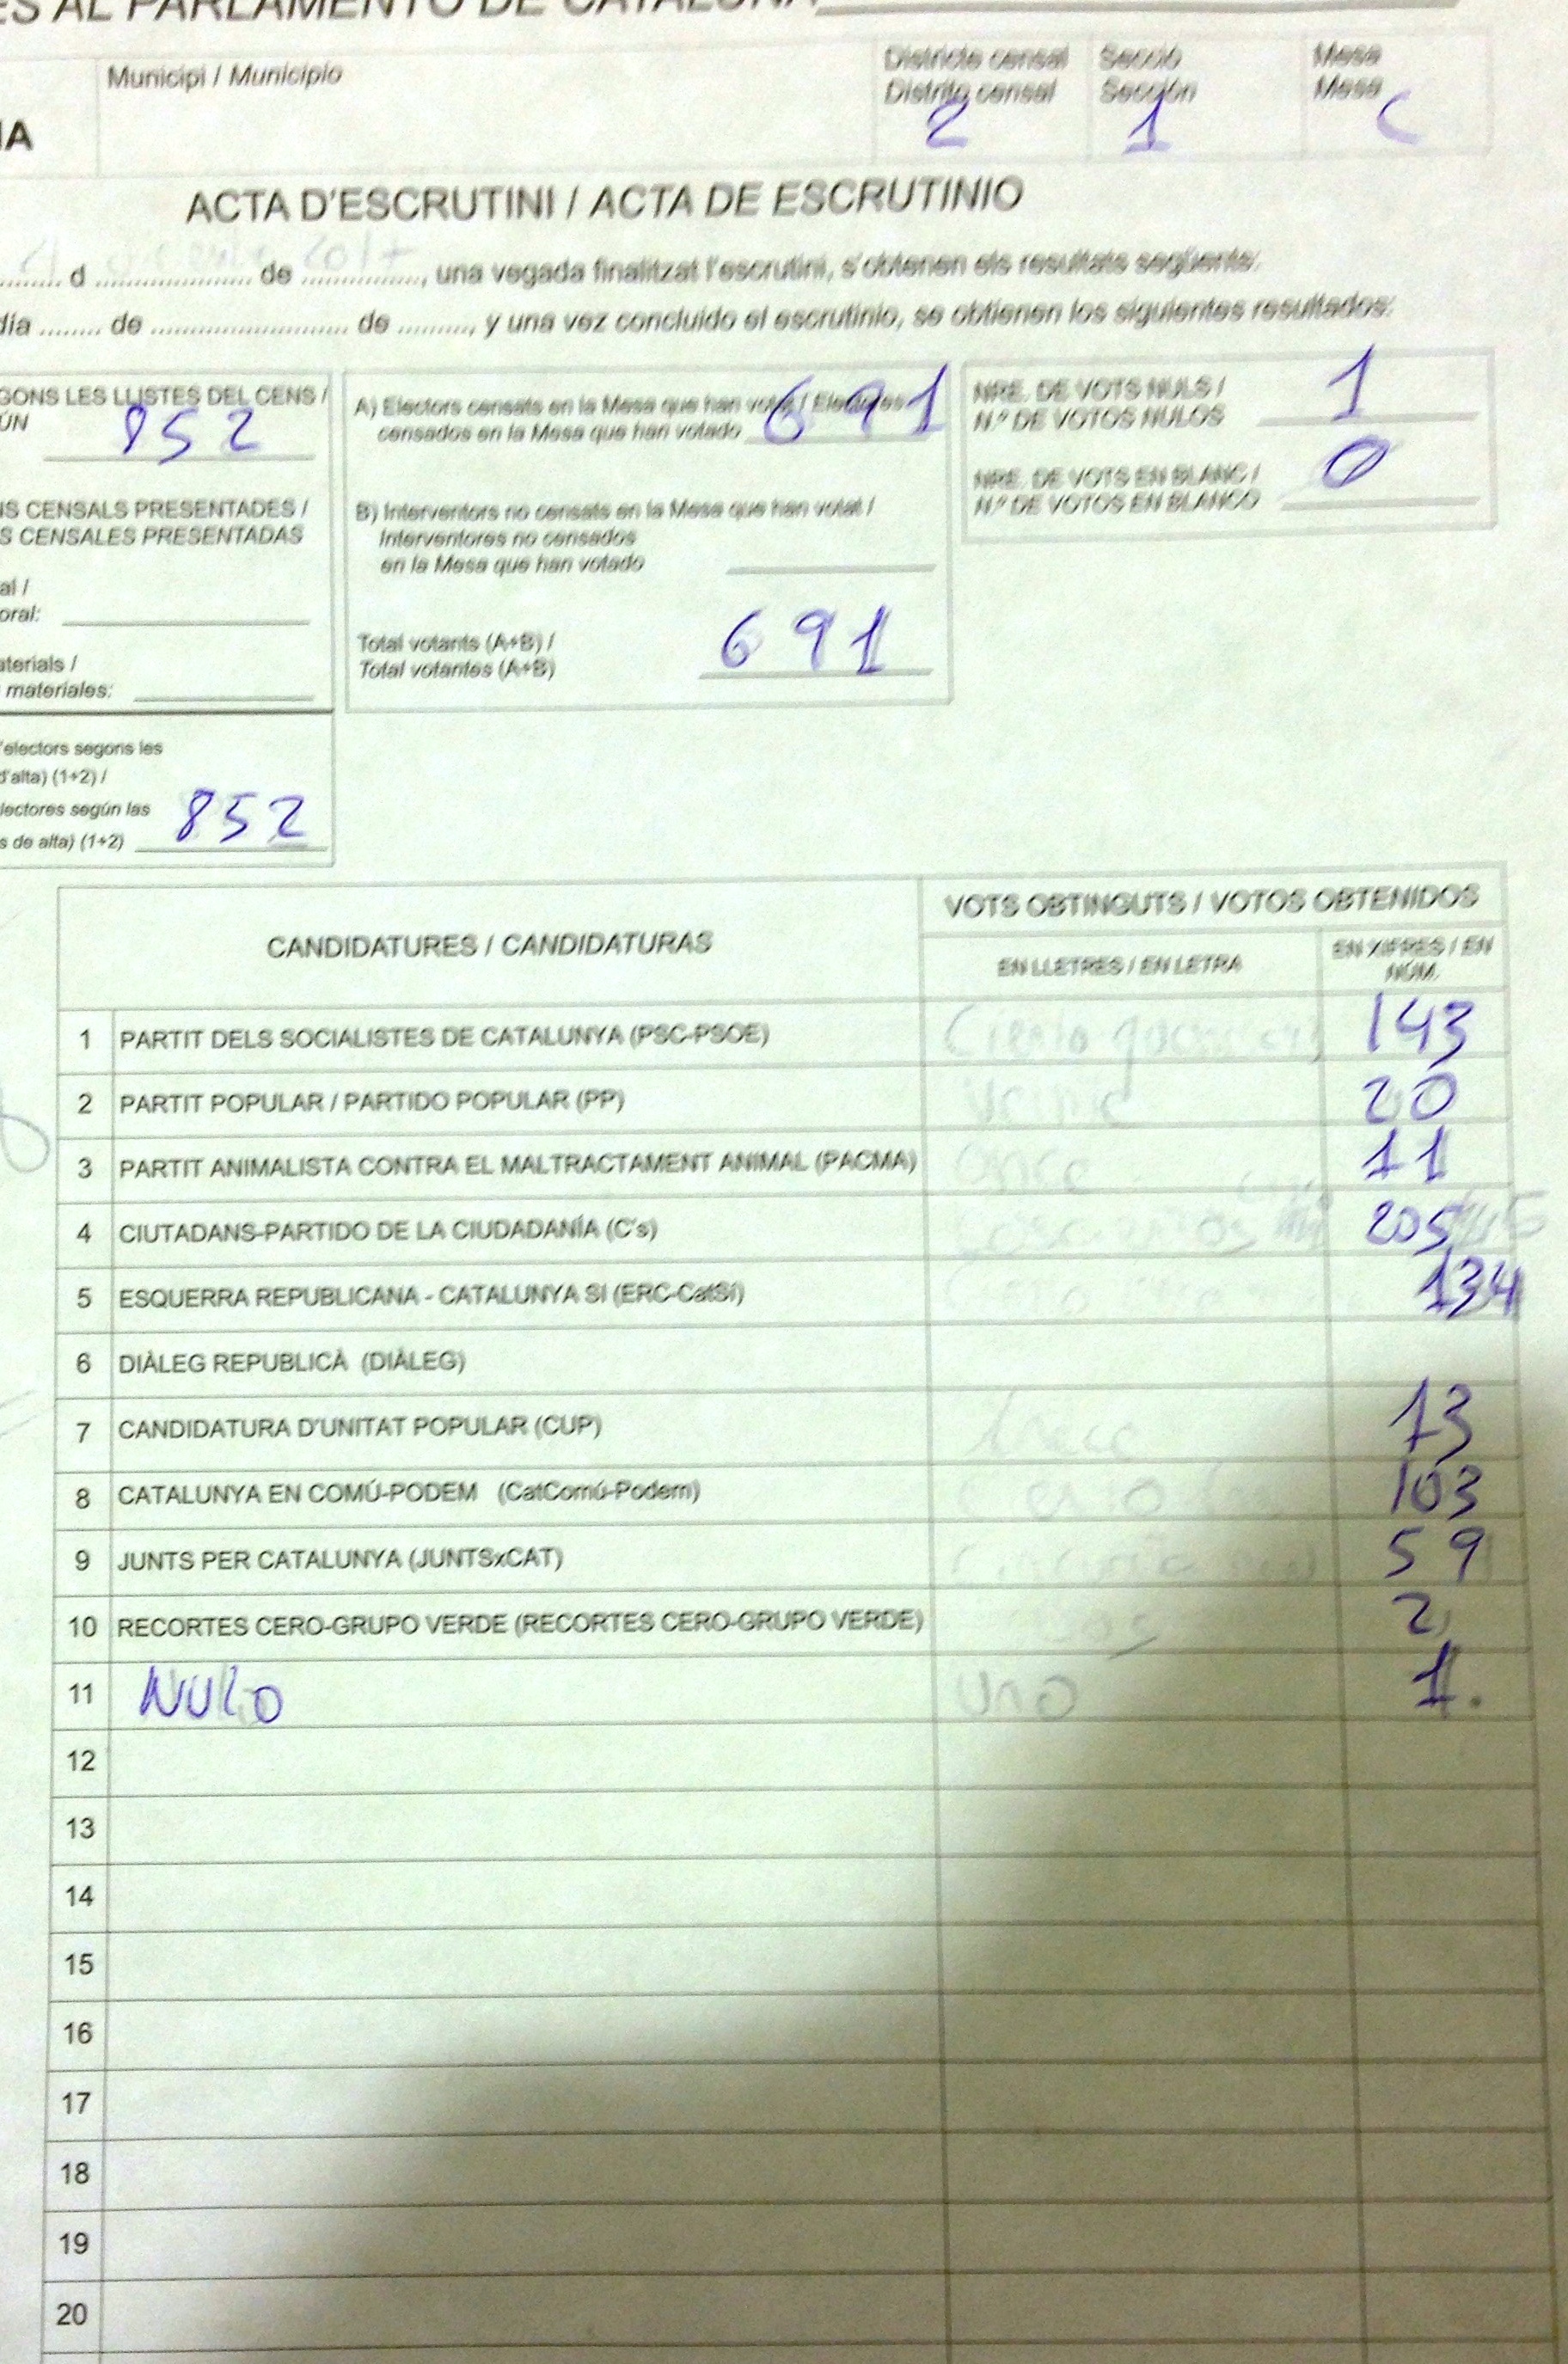 ES AL PARLAMENTO DE CATALUÑA
IA
Municipi / Municipio
Districte censal
Distrito censal
2
Secció
Sección
1
Mesa
Mesa
C
ACTA D'ESCRUTINI / ACTA DE ESCRUTINIO
d de 2017, una vegada finalitzat l'escrutini, s'obtenen els resultats següents:
día ........ de .......................... de .........., y una vez concluido el escrutinio, se obtienen los siguientes resultados:
GONS LES LLISTES DEL CENS /
ÚN
852
S CENSALS PRESENTADES /
S CENSALES PRESENTADAS
al /
oral:
aterials /
materiales:
'electors segons les
d'alta) (1+2) /
lectores según las
s de alta) (1+2) 852
A) Electors censats en la Mesa que han votat / Electores
censados en la Mesa que han votado 691
B) Interventors no censats en la Mesa que han votat /
Interventores no censados
en la Mesa que han votado
Total votants (A+B) /
Total votantes (A+B) 691
NRE. DE VOTS NULS /
N.º DE VOTOS NULOS 1
NRE. DE VOTS EN BLANC /
N.º DE VOTOS EN BLANCO 0
CANDIDATURES / CANDIDATURAS
VOTS OBTINGUTS / VOTOS OBTENIDOS
EN LLETRES / EN LETRA
EN XIFRES / EN
NÚM.
1 PARTIT DELS SOCIALISTES DE CATALUNYA (PSC-PSOE) Ciento 143
2 PARTIT POPULAR / PARTIDO POPULAR (PP) veinte 20
3 PARTIT ANIMALISTA CONTRA EL MALTRACTAMENT ANIMAL (PACMA) once 11
4 CIUTADANS-PARTIDO DE LA CIUDADANÍA (C's) 205
5 ESQUERRA REPUBLICANA - CATALUNYA SI (ERC-CatSí) 134
6 DIÀLEG REPUBLICÀ (DIÀLEG)
7 CANDIDATURA D'UNITAT POPULAR (CUP) trece 13
8 CATALUNYA EN COMÚ-PODEM (CatComú-Podem) 103
9 JUNTS PER CATALUNYA (JUNTSxCAT) 59
10 RECORTES CERO-GRUPO VERDE (RECORTES CERO-GRUPO VERDE) dos 2
11 NULO uno 1.
12
13
14
15
16
17
18
19
20